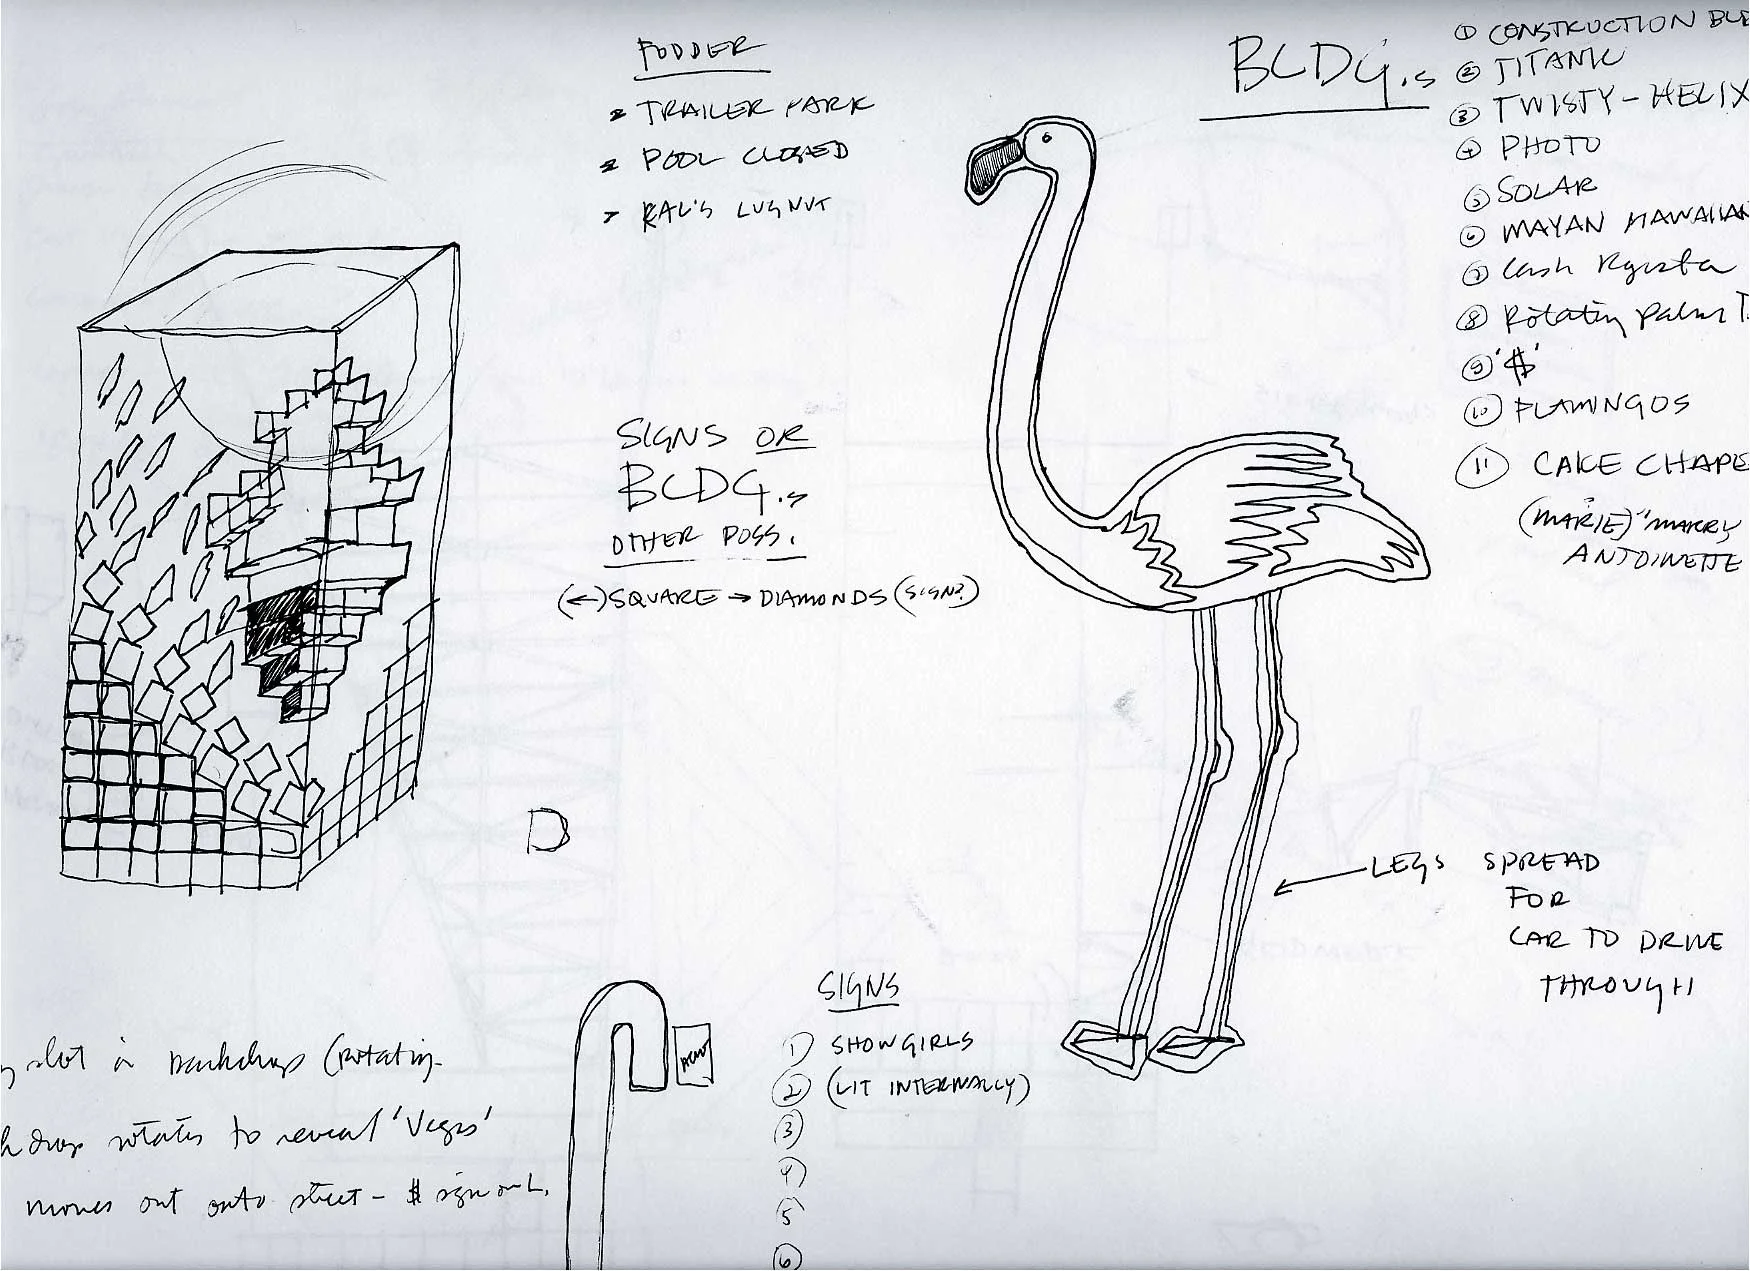 FODDER
TRAILER PARK
POOL CLOSED
LUGNUT
BLDG.s
① CONSTRUCTION
② TITANIC
③ TWISTY-HELIX
④ PHOTO
⑤ SOLAR
⑥ MAYAN HAWAIIAN
⑦ Cash Register
⑧ Rotating Palm T
⑨ '$'
⑩ FLAMINGOS
⑪ CAKE CHAPE
(MARIE) "MARRY
ANTOINETTE
SIGNS OR
BLDG.s
OTHER POSS.
(←) SQUARE → DIAMONDS (SIGN?)
D
LEGS SPREAD
FOR
CAR TO DRIVE
THROUGH
SIGNS
① SHOWGIRLS
② (LIT INTERNALLY)
③
④
⑤
⑥
slot in backdrop (rotating
drop rotates to reveal 'Vegas'
moves out onto street - $ sign on L.